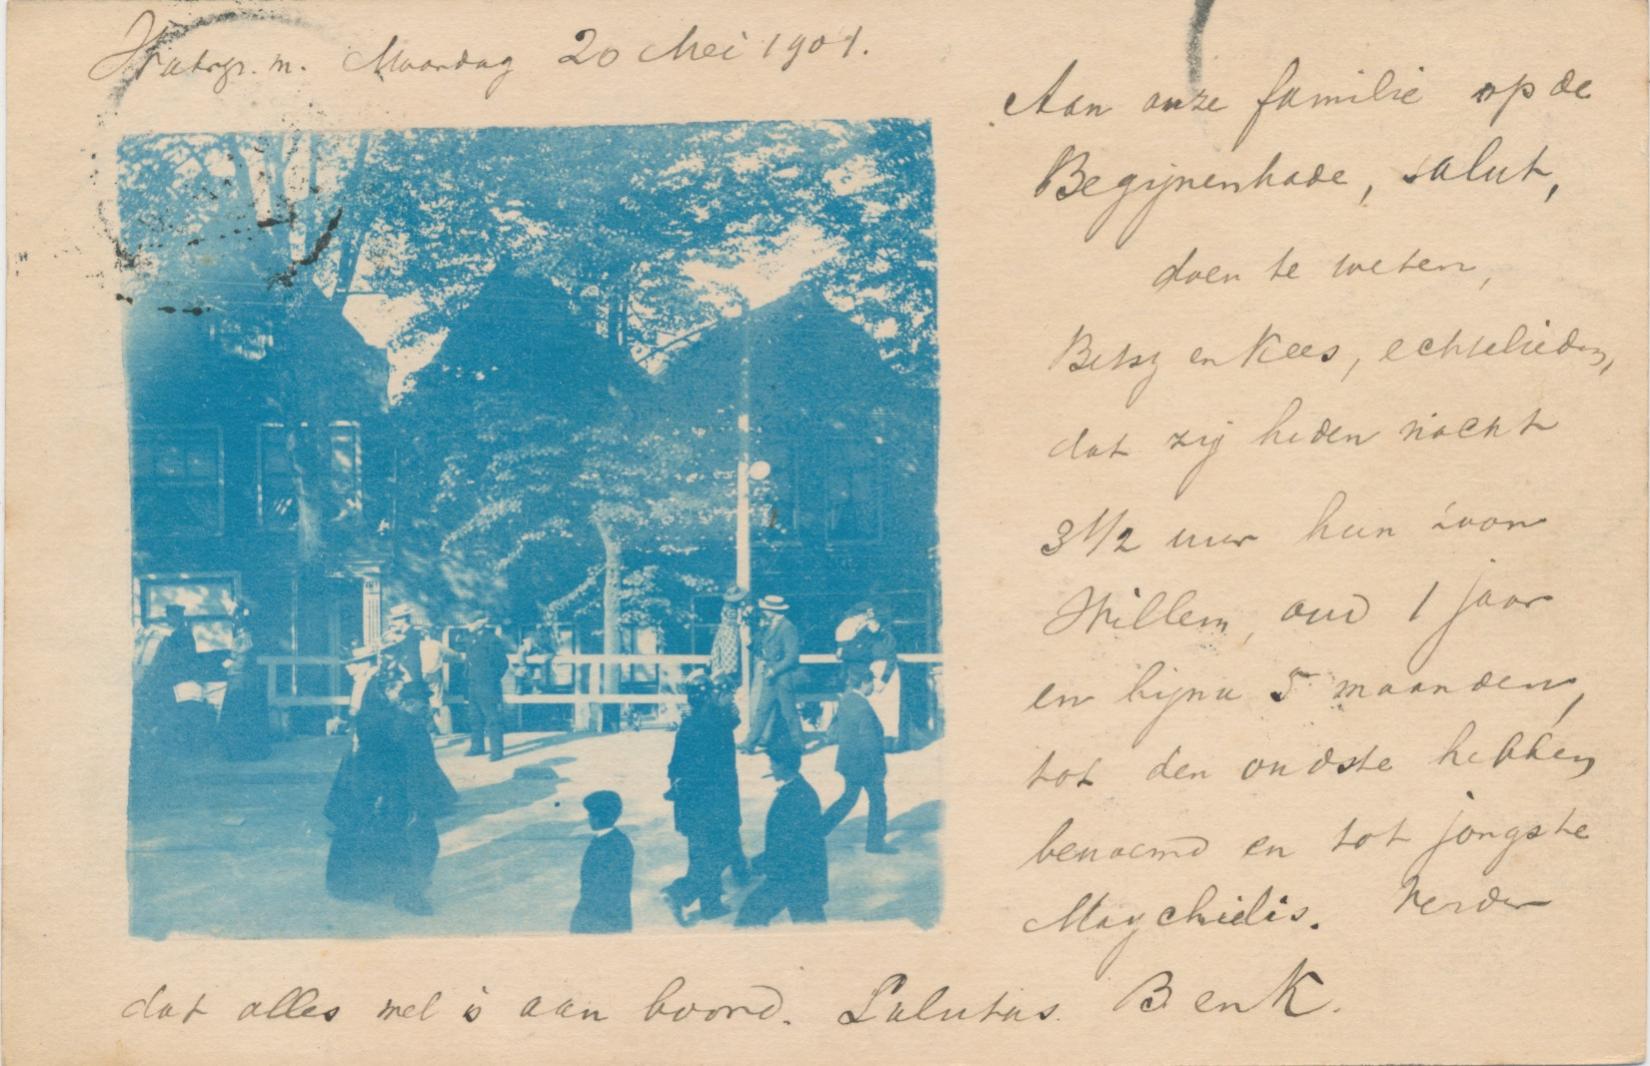 Watergr. m. Maandag 20 Mei 1901.
Aan onze familie op de
Begijnenkade, salut,
doen te weten,
Betsy en Kees, echtelieden,
dat zij heden nacht
3 1/2 uur hun zoon
Willem, oud 1 jaar
en bijna 5 maanden,
tot den oudste hebben
benoemd en tot jongste
Verder
dat alles wel is aan boord. Salutas B en K.